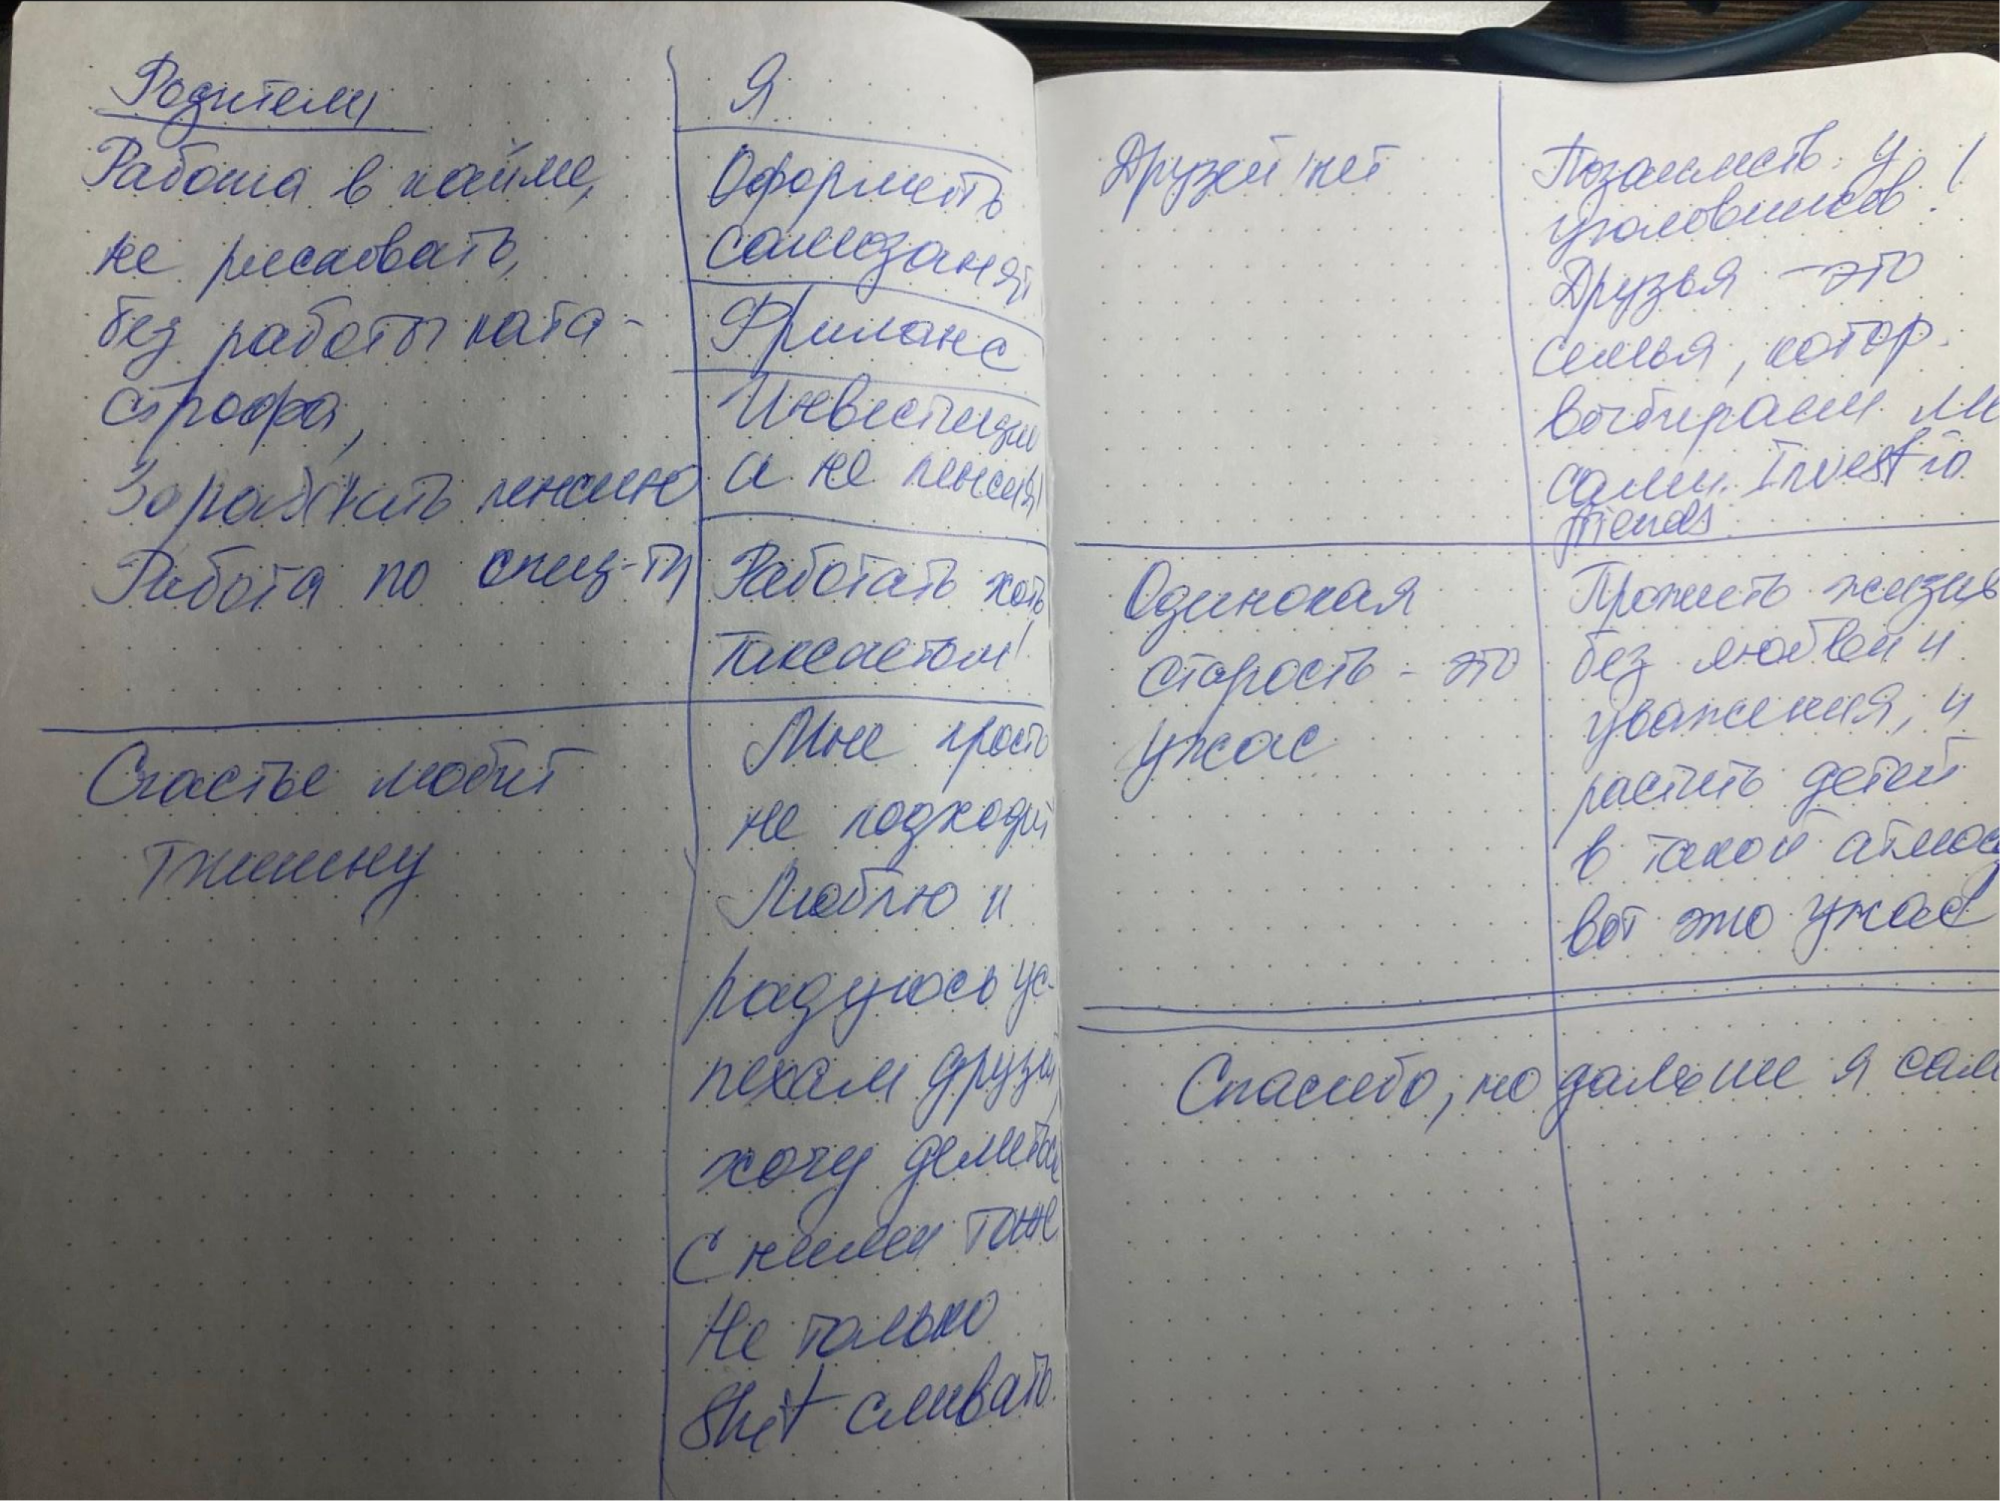 Родители
Работа в найме,
не рисковать,
без работы ката-
строфа,
Зарабатить пенсию
Работа по спец-ти
Счастье любит
тишину
Я
Оформить
самозанят
Фриланс
Инвестиции
а не пенсия!
Работать хоть
таксистом!
Мне просто
не подходит
Люблю и
радуюсь ус-
пехам друзей,
хочу делиться
с ними тоже
Не только
Shit сливать.
Друзей нет
Позаимств. у
уголовников!
Друзья - это
семья, котор.
выбираем мы
сами. Invest to
friends
Одинокая
старость - это
ужас
Прожить жизнь
без любви и
уважения, и
растить детей
в такой атмос
вот это ужас
Спасибо, но дальше я сам